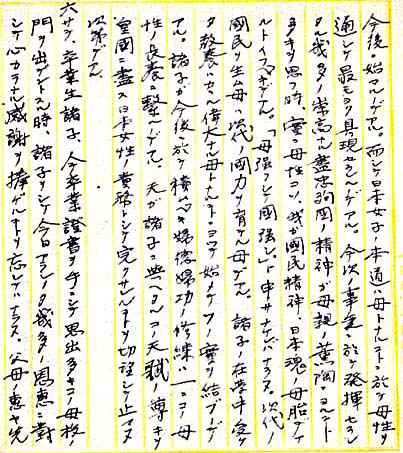 今後ニ始マルノデアル。而シテ日本女子ノ本道ハ母トナルコトニ於テ母性ヲ
通シテ最モヨク具現セラルルノデアル。今次ノ事変ニ於テ発揮セラレ
タル幾多ノ崇高ナル盡忠殉国ノ精神ガ母親ノ薫陶ニヨルコト
多キヲ思フ時、実ニ母性コソハ我ガ國民精神、日本魂ノ母胎デア
ルトイフベキデアル。「母強クシテ國強シ」ト申サナケレバナラヌ。次代ノ
國民ヲ生ム母ハ次代ノ國力ヲ育テル母デアル。諸子ノ在学中受ケ
タ教養ハカカル偉大ナル母トナルコトニヨツテ始メテソノ実ヲ結ブノデ
アル。諸子ガ今後ニ於テ積ムベキ婦徳婦功ノ修練ハ一ニコノ母
性ノ長養ニ繋ルノデアル。天ガ諸子ニ與ヘタルコノ天職ノ尊キヲ
皇國ニ盡ス日本女性ノ責務トシテ完ウサレンコトヲ切望シテ止マヌ
次第デアル
六サテ、卒業生諸子、今卒業證書ヲ手ニシテ思出多キコノ母校ノ
門ヲ出デントスル時、諸子ヲシテ今日アラシメタ幾多ノ恩恵ニ對
シテ心カラナル感謝ヲ捧ゲルコトヲ忘レテハナラヌ。父母ノ恵ハ先